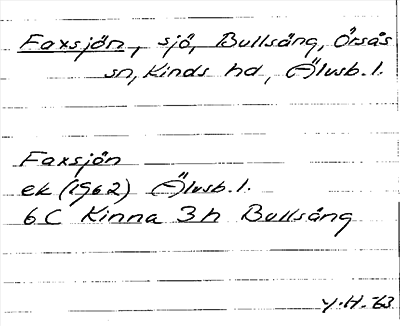 Faxsjön, sjö, Bullsäng, Örsås
sn, Kinds hd, Älvsb. l.
Faxsjön
ek (1962) Älvsb. l.
6 C Kinna 3 h Bullsäng
Y.H.-63